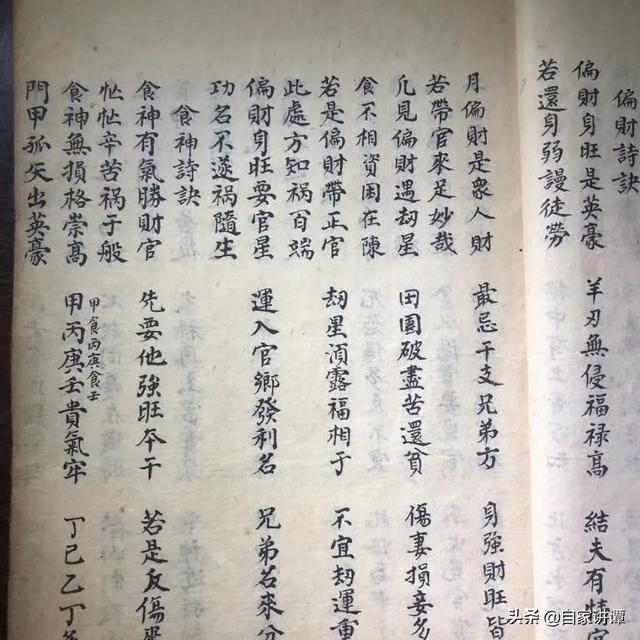 偏財詩訣
偏財身旺是英豪 羊刃無侵福禄高 結夫有情
若還身弱謾徒勞
月偏財是衆人財 最忌干支兄弟方 身強財旺皆
若帶官來足妙哉
凢見偏財遇刼星 田園破盡苦還貧 傷妻損妾多
食不相資困在陳
若是偏財帶正官 刼星湏露福相于 不宜刼運重
此處方知禍百端
偏財身旺要官星 運入官鄉發利名 兄弟名來分
功名不遂禍隨生
食神詩訣
食神有氣勝財官 先要他強旺夲干 若是反傷
忙忙辛苦祸于般
食神無損格崇高 甲丙庚壬貴氣牢 丁己乙丁
甲食丙庚食壬
門甲孤矢出英豪
头条 @自家讲谭